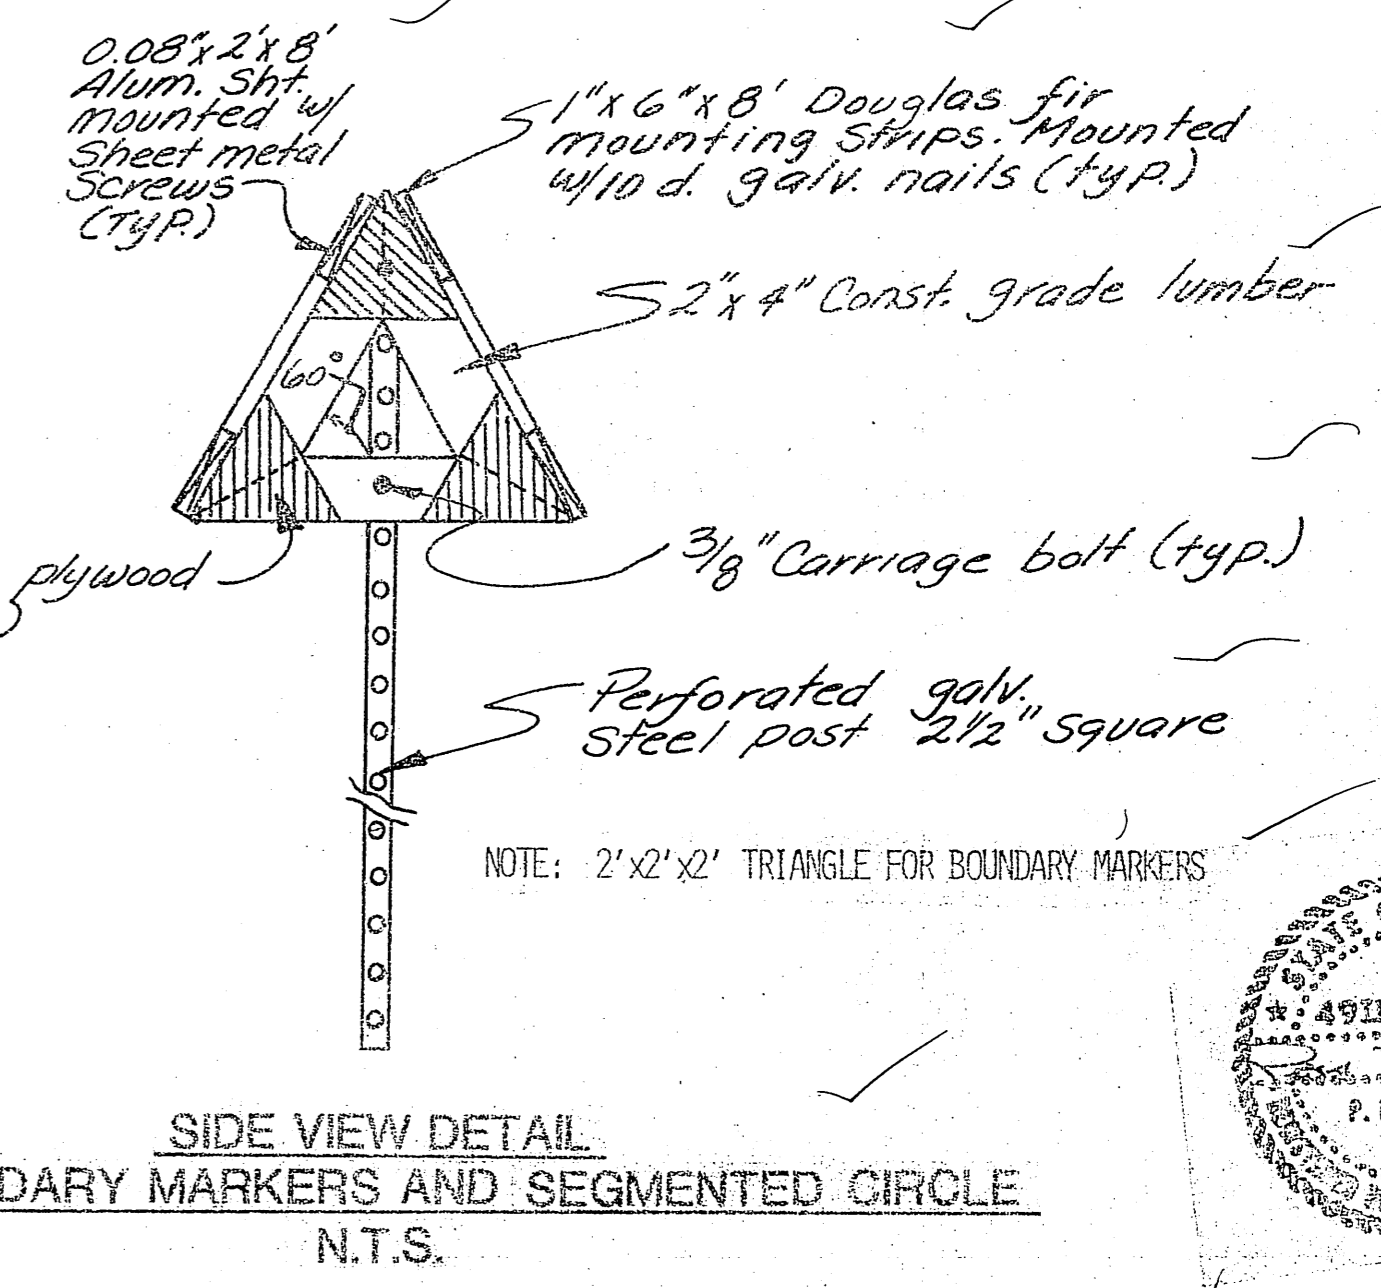 0.08"x2'x8'
Alum. Sht.
mounted w/
Sheet metal
Screws
(TYP.)
1"x6"x8' Douglas fir
mounting Strips. Mounted
w/10 d. galv. nails (typ.)
2"x4" Const. grade lumber
60°
plywood
3/8" Carriage bolt (typ.)
Perforated galv.
Steel post 2½" Square
NOTE: 2'x2'x2' TRIANGLE FOR BOUNDARY MARKERS
SIDE VIEW DETAIL
DARY MARKERS AND SEGMENTED CIRCLE
N.T.S.